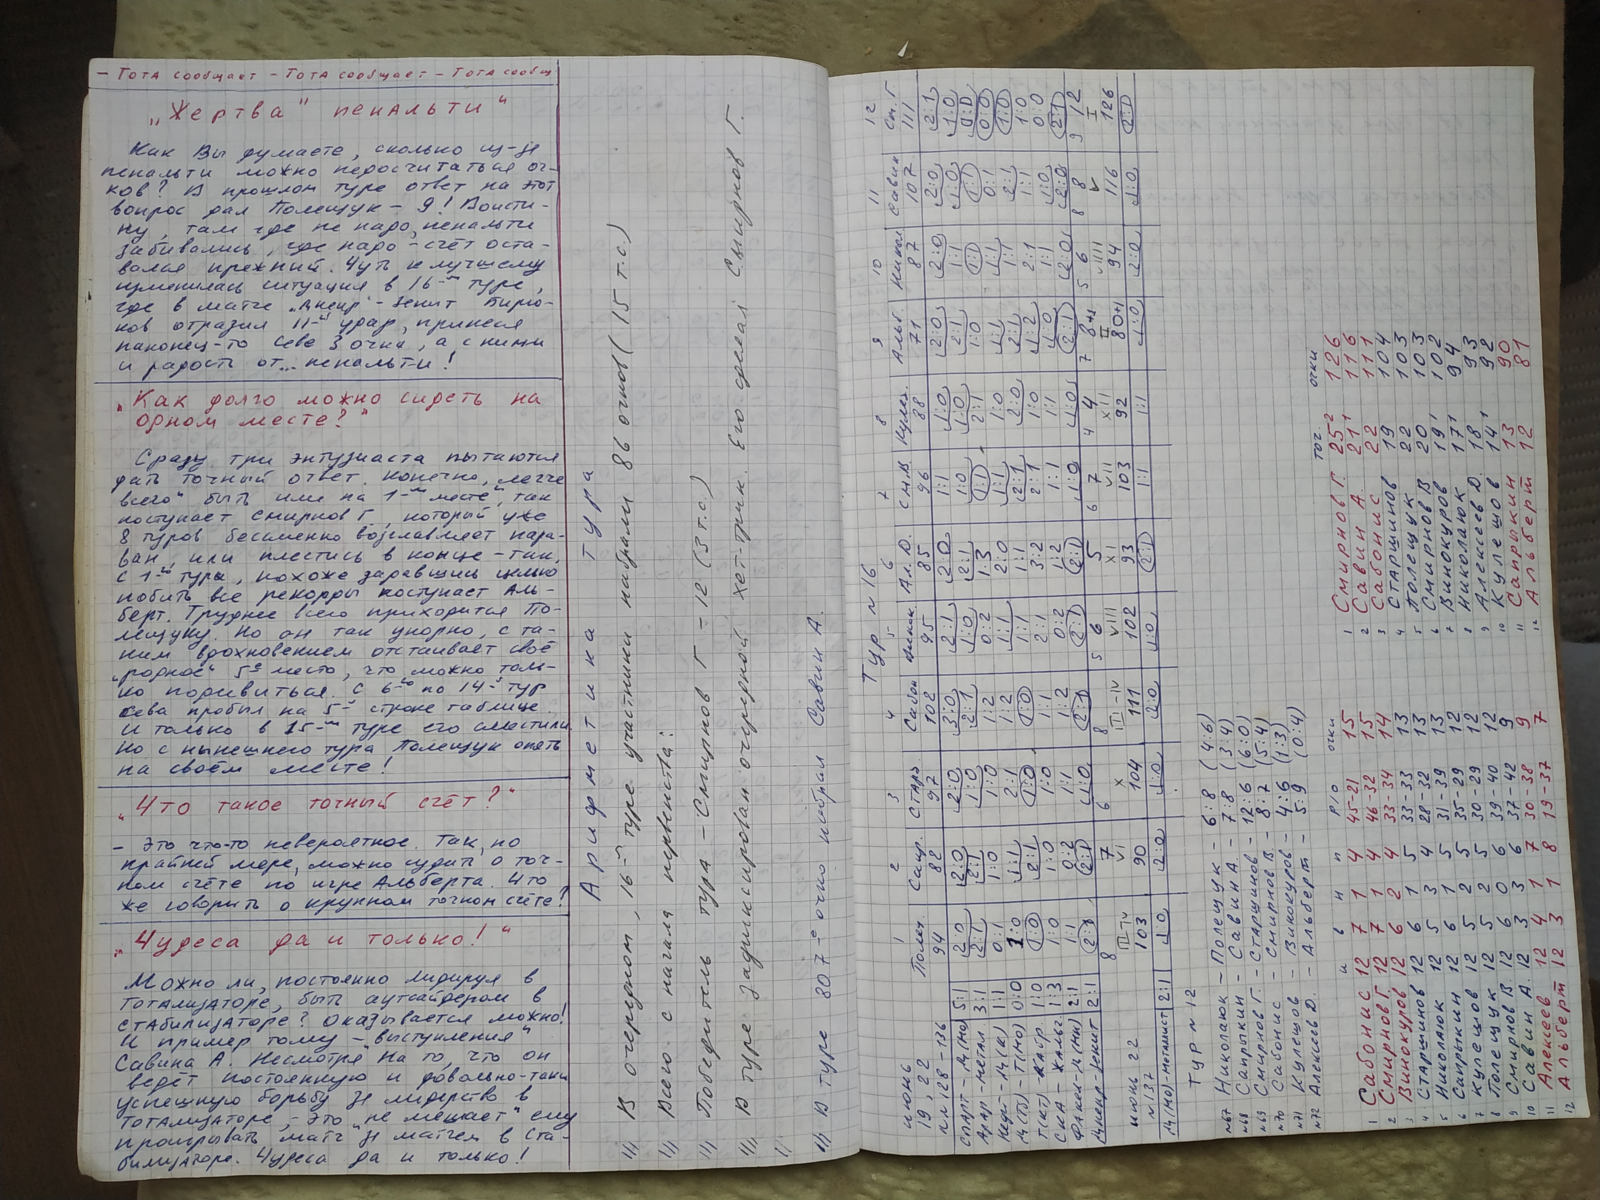 - ТотА сообщает - ТотА сообщает - ТотА сообщ
„Жертва" пенальти"
Как Вы думаете, сколько из-за
пенальти можно недосчитаться оч-
ков? В прошлом туре ответ на этот
вопрос дал Полещук - 9! Воисти-
ну, там где не надо, пенальти
забивались, где надо - счёт оста-
вался прежний. Чуть к лучшему
изменилась ситуация в 16-м туре,
где в матче „Днепр" - Зенит Бирю-
ков отразил 11-й удар, принеся
наконец-то себе 3 очка, а с ними
и радость от... пенальти!
„Как долго можно сидеть на
одном месте?"
Сразу три энтузиаста пытаются
дать точный ответ. Конечно, легче
всего быть или на 1-м месте, так
поступает Смирнов Г., который уже
8 туров бессменно возглавляет кара-
ван, или плестись в конце - так,
с 1-го тура, похоже задавшись целью
побить все рекорды поступает Аль-
берт. Труднее всего приходится По-
лещуку. Но он так упорно, с та-
ким вдохновением отстаивает своё
„родное" 5-е место, что можно толь-
ко подивиться. С 6-го по 14-й тур
Сева пробыл на 5-й строке таблице.
И только в 15-м туре его сместили.
Но с нынешнего тура Полещук опять
на своём месте!
„Что такое точный счёт?"
- Это что-то невероятное. Так, по
крайней мере, можно судить о точ-
ном счёте по игре Альберта. Что
же говорить о крупном точном счёте!
„Чудеса да и только!"
Можно ли, постоянно лидируя в
ТОТАЛИЗАТОРЕ, быть аутсайдером в
СТАБИЛИЗАТОРЕ? Оказывается можно!
И пример тому - выступления
Савина А. Несмотря на то, что он
ведёт постоянную и довольно-таки
успешную борьбу за лидерство в
ТОТАЛИЗАТОРЕ, - это „не мешает" ему
проигрывать матч за матчем в Ста-
билизаторе. Чудеса да и только!
Арифметика тура
В очередном, 16-м туре участники набрали 86 очков (15 т.с.)
Всего с начала первенства:
Победитель тура - Смирнов Г - 12 (3 т.с.)
В туре зафиксирован очередной хет-трик. Его сделал Смирнов Г.
В туре 807-е очко набрал Савин А.
Тур №16
июнь
19, 22
1 2 3 4 5 6 7 8 9 10 11 12
Полещ. Сапр. Старш Сабон Виник Ал.Д. См.В. Кулеш. Альб Никол Савин См.Г
94 88 97 102 95 85 96 88 71 87 107 111
Спарт - Д(Мо) 5:1
Арар - Метал 3:1
Д(Тб) - Т(Мо) 0:0
Т(Кт) - Кайр 1:0
СКА - Жальг 1:3
Факел - Д(Мн) 2:1
Днепр - Зенит 2:1
III-IV VI X III-IV VIII XI VII XII II VIII V I
103 90 104 111 102 93 103 92 80+1 94 116 126
июнь 22
№137
Д(Мо)-Металист 2:1 1:0 2:0 1:0 2:0 1:0 2:1 1:1 1:1 1:0 2:0 1:0 2:1
Тур №12
№67 Николаюк - Полещук - 6:8 (4:6)
№68 Сапрыкин - Савин А - 7:8 (3:4)
№69 Смирнов Г. - Старшинов - 12:6 (6:0)
№70 Сабонис - Смирнов В. - 8:7 (5:4)
№71 Кулешов - Винокуров - 4:6 (1:3)
№72 Алексеев Д. - Альберт - 5:9 (0:4)
и в н п р/о очки
1 Сабонис 12 7 1 4 45-21 15
2 Смирнов Г. 12 7 1 4 46-32 15
3 Винокуров 12 6 2 4 33-34 14
4 Старшинов 12 6 1 5 33-33 13
5 Николаюк 12 5 3 4 28-32 13
6 Сапрыкин 12 6 1 5 31-39 13
7 Кулешов 12 5 2 5 35-29 12
8 Полещук 12 5 2 5 30-29 12
9 Смирнов В 12 6 0 6 39-40 12
10 Савин А. 12 3 3 6 37-42 9
11 Алексеев 12 4 1 7 30-38 9
12 Альберт 12 3 1 8 19-37 7
точ. очки
1 Смирнов Г. 25² 126
2 Савин А. 21¹ 116
3 Сабонис 22 111
4 Старшинов 19 104
5 Полещук 22 103
6 Смирнов В 20¹ 103
7 Винокуров 19¹ 102
8 Николаюк 17¹ 94
9 Алексеев Д. 18¹ 93
10 Кулешов 14¹ 92
11 Сапрыкин 13 90
12 Альберт 12 81